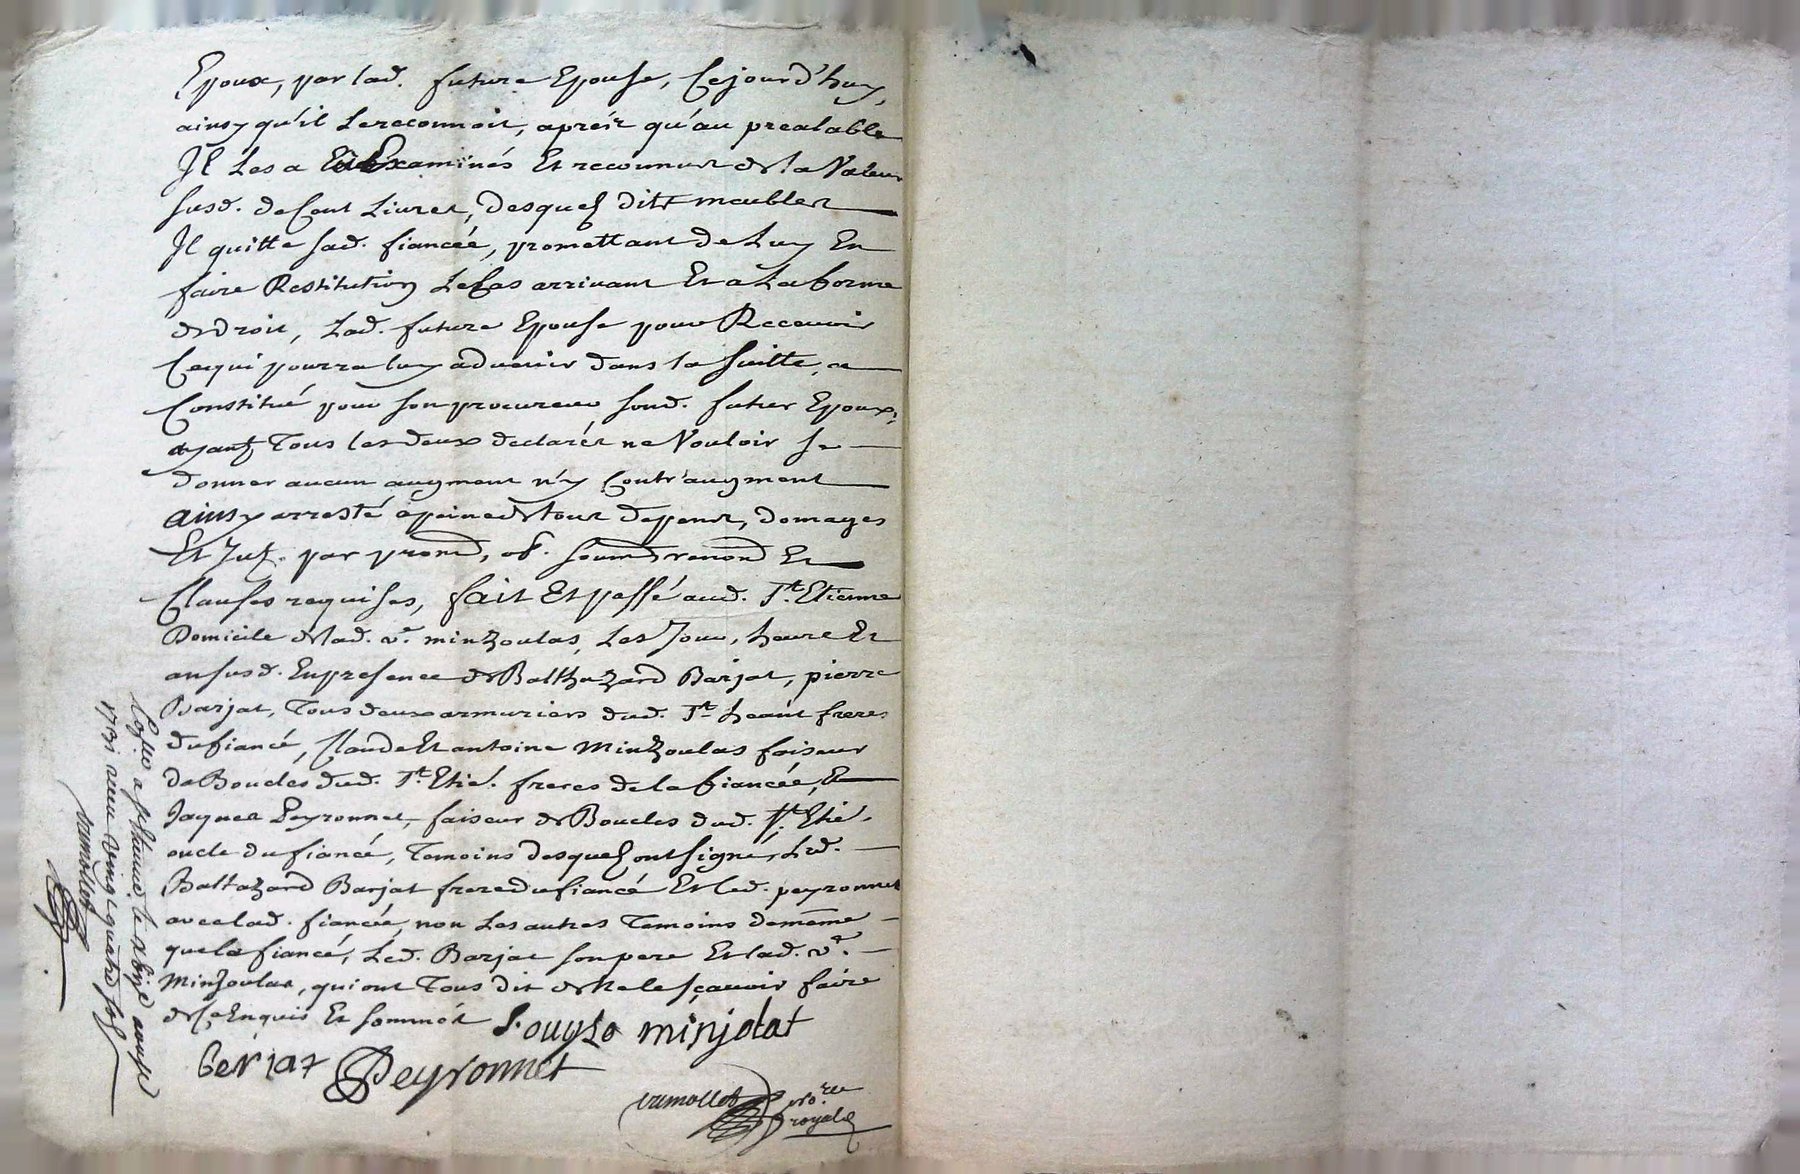 Epoux, par lad. future Epouse, Cejourd'huy,
ainsy qu'il Lereconnoit, aprés qu'au prealable
Il Les a Examinés Et reconnus de la Valeur
susd. de Cent Livres, desquels dits meubles
Il quitte sad. fiancée, promettant de Luy En
faire Restitution Le Cas arrivant Et a La forme
de droit, Lad. future Epouse pour Recevoir
Cequi pourra luy advenir dans la suitte, a
Constitué pour son procureur sond. futur Epoux,
ayant Tous les deux declarés ne Vouloir se
donner aucun augment n'y Contr'augment
ainsy arresté apeine de tous depens, domages
Et Int. par prom, ob. soum renon Et
Clauses requises, fait Et passé aud. St. Etienne
Domicile de lad. ve. minzoulas, Les Jour, heure Et
an susd. En presence de Balthazard Barjat, pierre
Barjat, Tous deux armuriers dud. St heant freres
du fiancé, Claude Et antoine Minzoulas faiseur
de Boucles dud. St. Etie. freres de la fiancée, Et
Jaques Peyronnet, faiseur de Boucles dud. St. Etie.
oncle du fiancé, Temoins desquels ont signé, Led.
Baltazard Barjat frere du fiancé Et led. peyronnet
avec lad. fiancée, non Les autres Temoins de meme
que le fiancé, Led. Barjat son pere Et lad. ve.
Minzoulas, qui ont Tous dit de ne le sçavoir faire
de Ce Enquis Et sommés Louyse minjolat
berjat Peyronnet
no.re
royal
a St Etienne le aoust
1731 vingt quatre sols